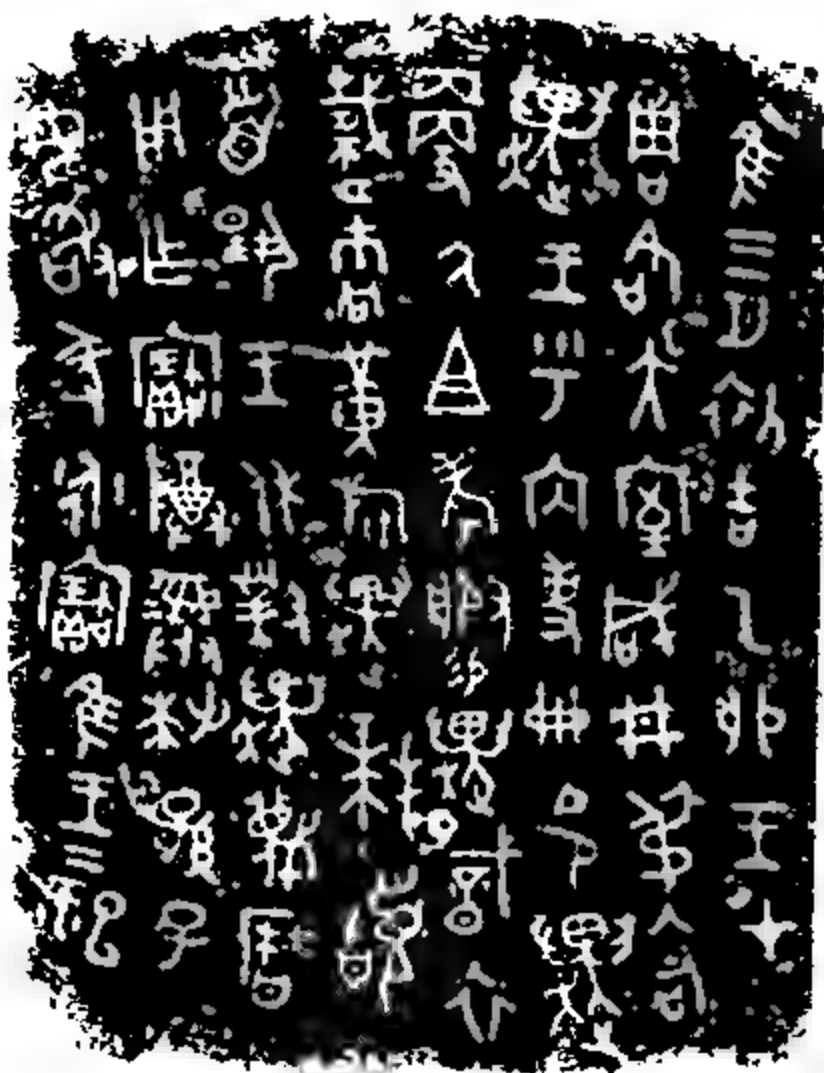 隹三月初吉乙卯王才
周各大室咸井弔入右
趩王乎內史冊令趩
更氒且考服易趩戠衣
載巿冋黃旂趩拜𩒨
首揚王休對趩蔑曆
用乍寶尊彝枻孫子
毋敢墜永寶隹王二祀